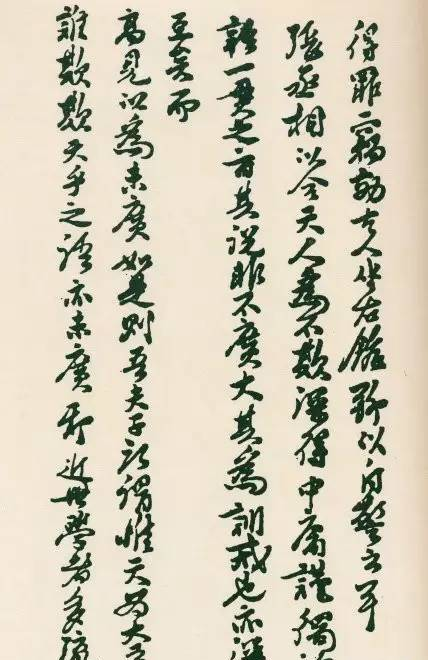 得罪二稿效古人坐右銘聊以自警云耳
張丞相以合天人為不欺深得中庸謹獨
一貫之旨其說非不廣大其為訓戒也亦深
至矣而
高見以為未廣如是則吾夫子所謂惟天為大
誰欺欺天乎之語亦未廣耶近世學者多